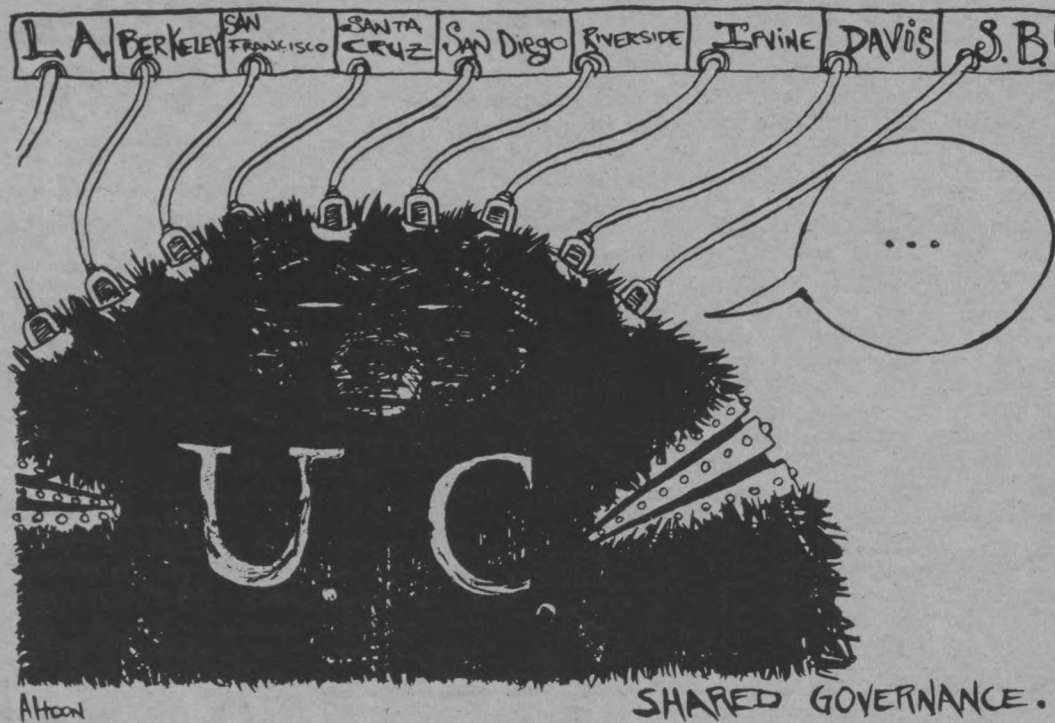 L.A.
BERKELEY
SAN
FRANCISCO
SANTA
CRUZ
SAN DiEgo
RIVERSIDE
IRVINE
DAViS
S.B.
...
U.C.
SHARED GOVERNANCE.